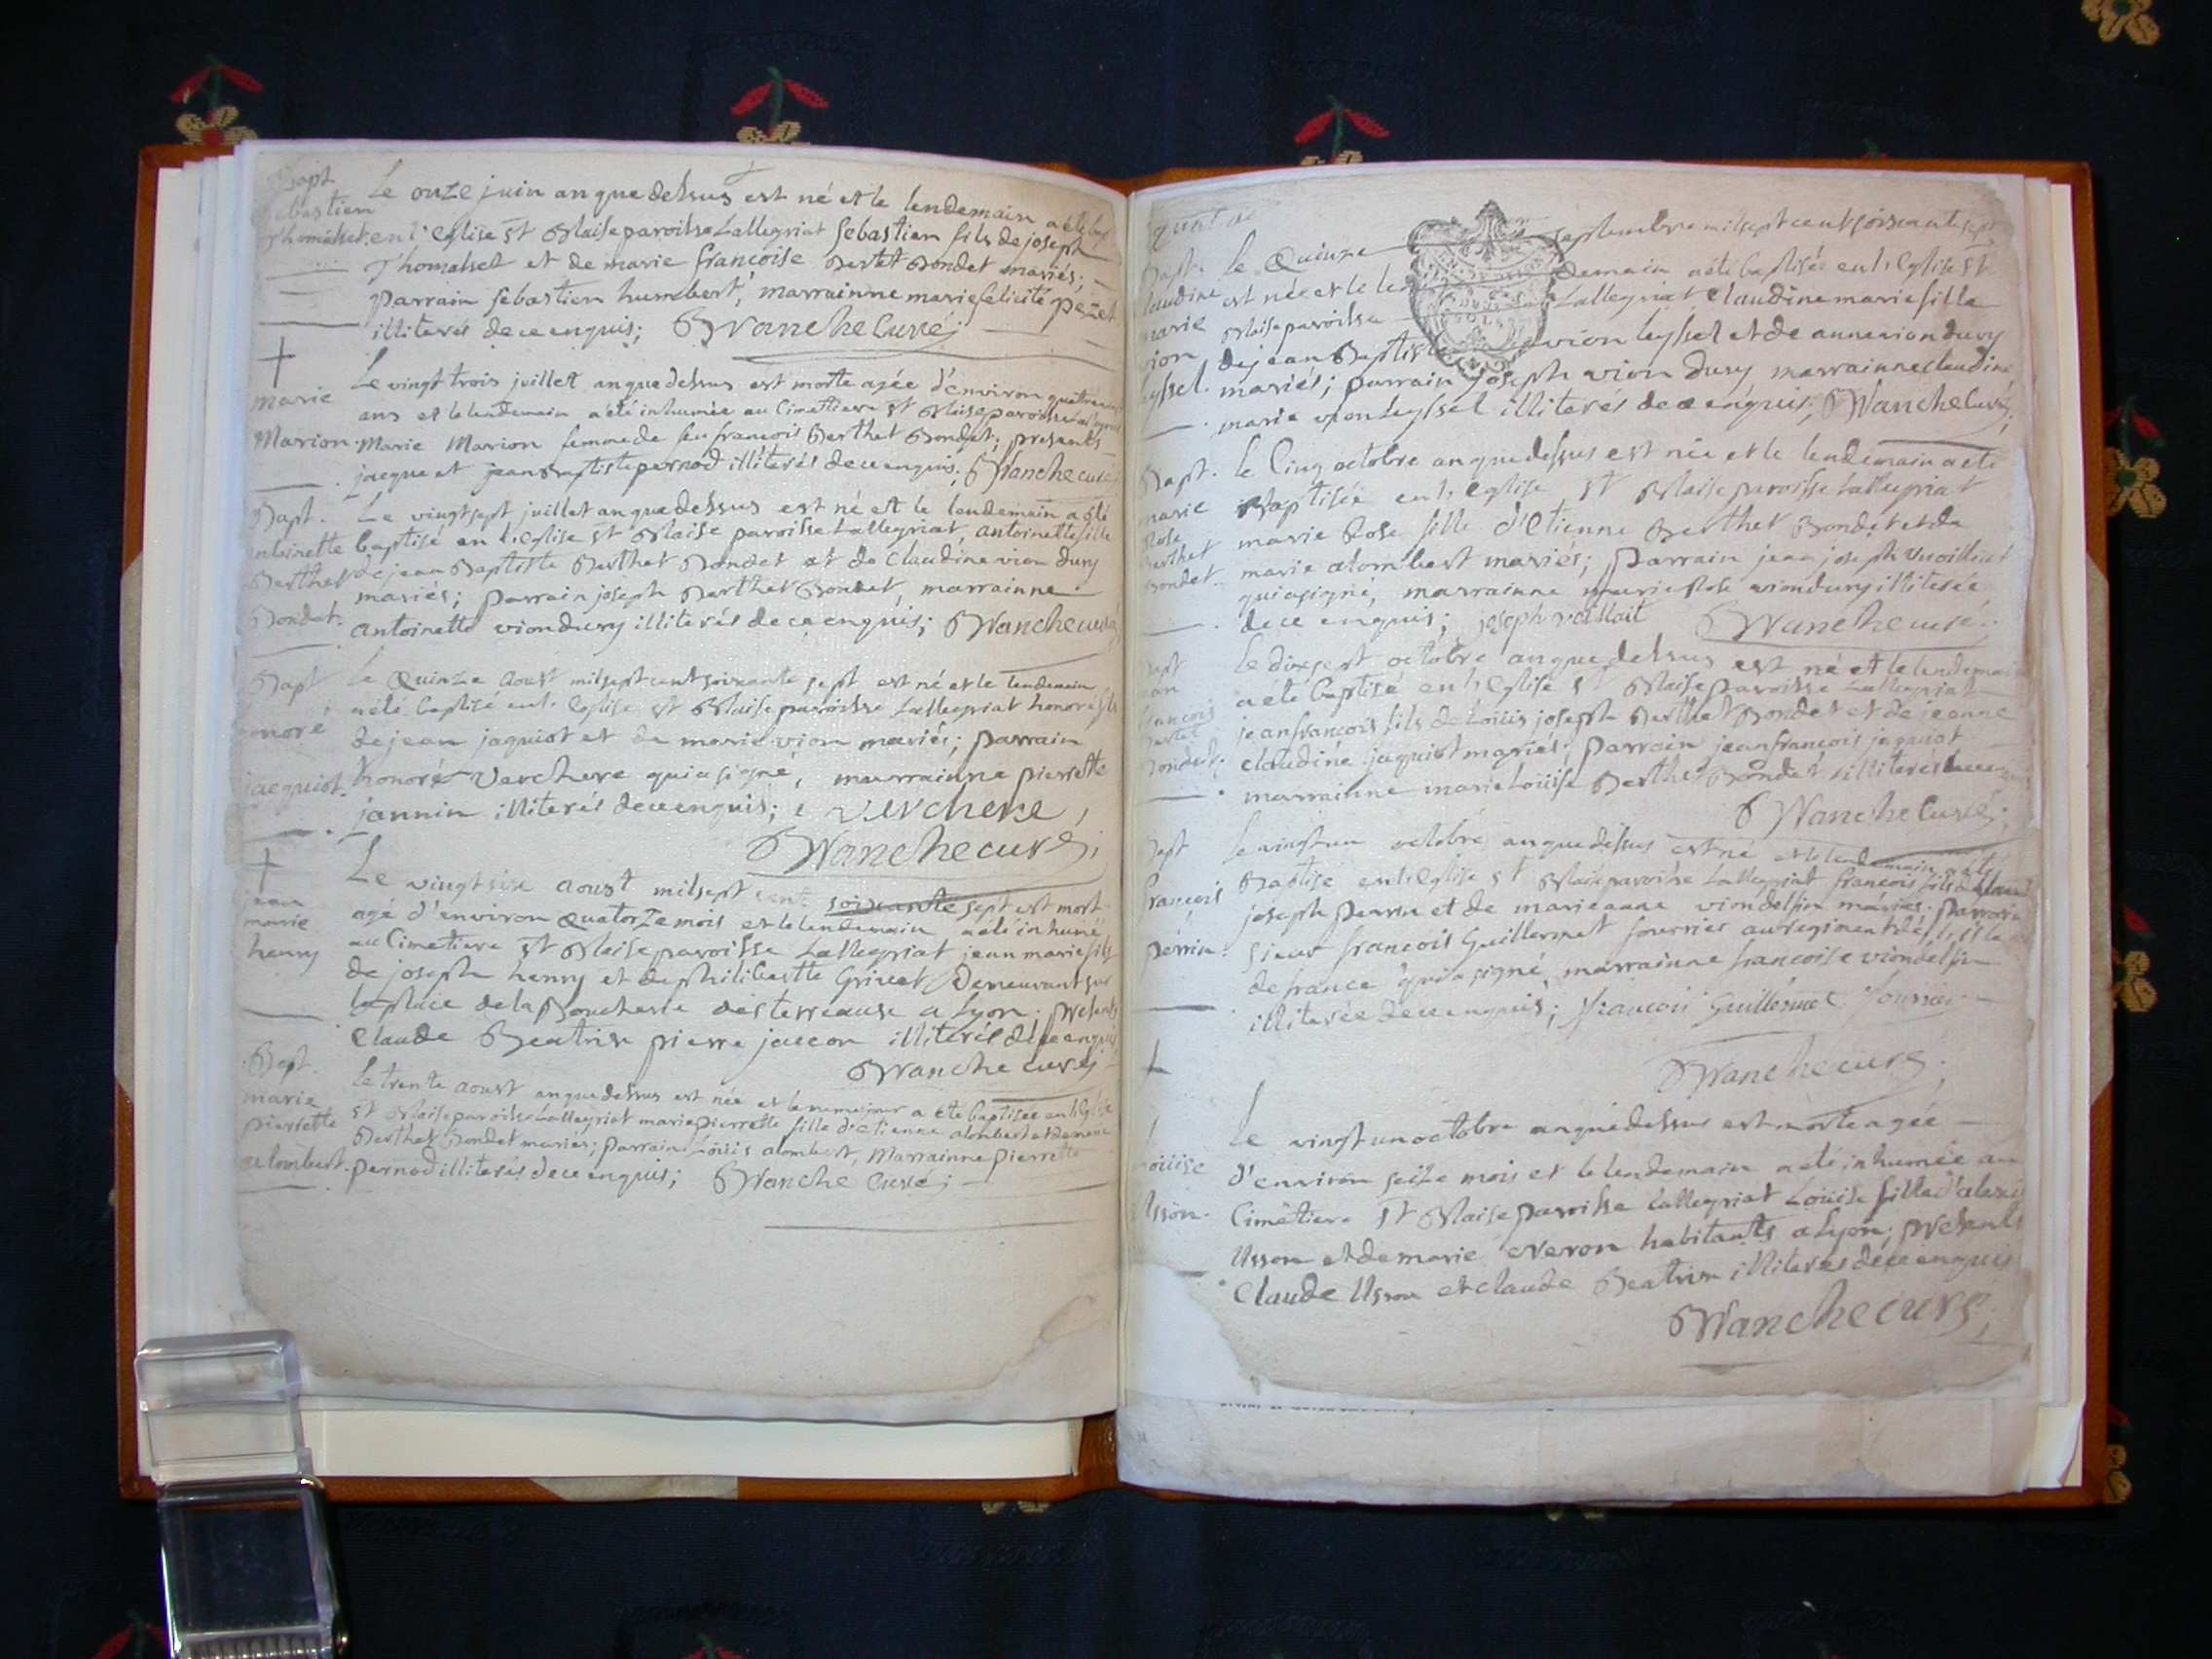 Bapt.
Sebastien
Thomasset.
Le onze juin an que dessus est né et le lendemain a été bap
en l'eglise st Blaise paroisse Lallegriat Sebastien fils de joseph
Thomasset et de marie francoise Bertet Bondet mariés;
parrain sebastien humbert, marrainne marie felicité pezet
illiterés de ce enquis; Blanche Curé;
†
marie
Marion.
Le vingt trois juillet an que dessus est morte agée d'environ quatre vingt
ans et le lendemain a été inhumée au Cimetiere st Blaise paroisse Lallegriat
Marie Marion femme de feu francois Berthet Bondet; presents
jacque et jean Baptiste pernod illiterés de ce enquis; Blanche curé
Bapt.
antoinette
Berthet
Bondet.
Le vingt sept juillet an que dessus est né et le lendemain a été
baptisé en l'Eglise st Blaise paroisse Lallegriat, antoinette fille
de jean Baptiste Berthet Bondet et de Claudine vion Dury
mariés; parrain joseph Berthet Bondet, marrainne
antoinette vion dury illiterés de ce enquis; Blanche curé
Bapt
honoré
jacquiot.
Le Quinze aoust mil sept cent soixante sept est né et le lendemain
a été baptisé en l'Eglise st Blaise paroisse Lallegriat honoré fils
de jean jaquiot et de marie vion mariés; parrain
honoré Verchere qui a signé, marrainne pierrette
jannin illiterés de ce enquis; verchere,
Blanche curé;
†
jean
marie
henry
Le vingt six aoust mil sept cent soixante sept est mort
agé d'environ Quatorze mois et le lendemain a été inhumé
au Cimetiere st Blaise paroisse Lallegriat jean marie fils
de joseph henry et de philiberte Grivet Demeurant sur
la place de la Boucherie des terreaux a Lyon; presents
Claude Beatrix pierre jaccon illiterés de ce enquis
Blanche curé;
Bapt.
marie
pierrette
alombert.
Le trente aoust an que dessus est née et le meme jour a été baptisée en l'Eglise
st Blaise paroisse Lallegriat marie pierrette fille d'etienne alombert et de marie
Berthet Bondet mariés; parrain Loüis alombert, Marrainne pierrette
pernod illiterés de ce enquis; Blanche Curé;
quatre
Bapt.
claudine
marie
vion
leyssel.
Le Quinze septembre mil sept cent soixante sept
est née et le lendemain a été baptisée en l'Eglise st
Blaise paroisse Lallegriat Claudine marie fille
de jean Baptiste vion leyssel et de anne vion dury
mariés; parrain joseph vion Dury marrainne claudine
marie vion leyssel illiterés de ce enquis; Blanche Curé;
Bapt.
marie
Rose
Berthet
Bondet.
Le Cinq octobre an que dessus est née et le lendemain a été
Baptisée en l'Eglise st Blaise paroisse Lallegriat
marie Rose fille d'Etienne Berthet Bondet et de
marie alombert mariés; parrain jean joseph
qui a signé, marrainne marie Rose vion dury illiterée
de ce enquis; joseph Blanche curé;
Bapt
jean
francois
Bertet
Bondet;
Le dix sept octobre an que dessus est né et le lendemain
a été baptisé en l'Eglise st Blaise paroisse Lallegriat
jean francois fils de Loüis joseph Berthet Bondet et de jeanne
claudine jaquiot mariés; parrain jean francois jaquiot
marrainne marie Loüise Berthet Bondet illiterés de ce
Blanche Curé;
Bapt
francois
perrin.
Le vingt un octobre an que dessus est né et le lendemain a été
Baptisé en l'Eglise st Blaise paroisse Lallegriat francois fils de
joseph perrin et de marie anne vion delphin mariés; parrain
sieur francois Guillermet fourrier au regiment de l'isle
de france qui a signé, marrainne francoise vion delphin
illiterée de ce enquis; francois Guillermet fourrier
Blanche curé;
†
Loüise
Usson.
Le vingt un octobre an que dessus est morte agée
d'environ seize mois et le lendemain a été inhumée au
Cimetiere st Blaise paroisse Lallegriat Loüise fille d'alexis
Usson et de marie neron habitants a Lyon; presents
Claude Usson et claude Beatrix illiterés de ce enquis
Blanche curé;